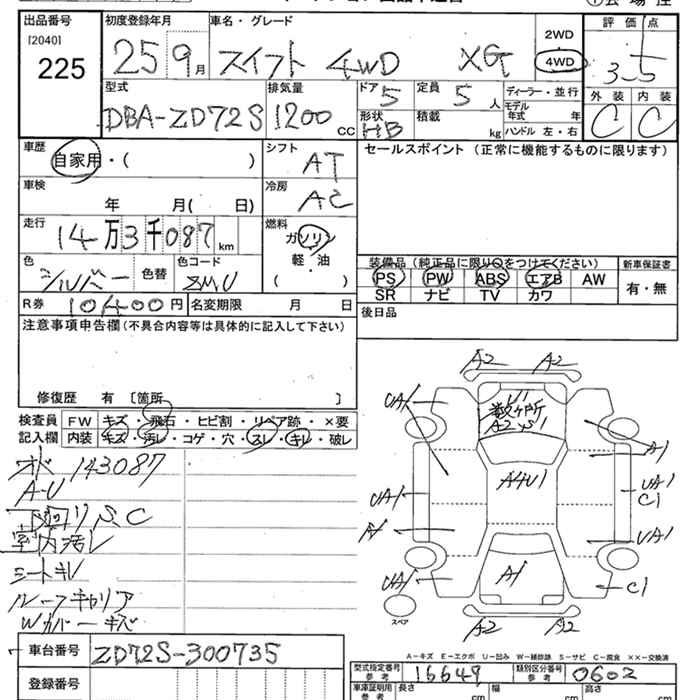 出品番号 初度登録年月 車名・グレード 評価点
[2040] 225 25 9月 スイフト 4WD XG 2WD 4WD 3.5
外装 内装
C C
型式 排気量 ドア 定員 ディーラー・並行
DBA-ZD72S 1200cc 5 5人 モデル年式 年
形状 HB 積載 kg ハンドル 左・右
車歴 自家用・( ) シフト AT セールスポイント (正常に機能するものに限ります)
車検 年 月( 日) 冷房 AC
走行 14万3千087km 燃料 ガソリン
軽・油
( )
色 シルバー 色替 色コード ZMU
装備品 (純正品に限り○をつけてください) 新車保証書
PS PW ABS エアB AW 有・無
SR ナビ TV カワ
R券 10400円 名変期限 月 日
後日品
注意事項申告欄 (不具合内容等は具体的に記入して下さい)
修復歴 有 [箇所 ]
検査員 FW キズ・飛石・ヒビ割・リペア跡・×要
記入欄 内装 キズ・汚レ・コゲ・穴・スレ・キレ・破レ
143087
A-U
下回りS.C
室内汚レ
シートキレ
ルーフキャリア
Wカバーキズ
A2 A2
UA1 U1
数ヶ所
A2 S1
A1
A4U1
UA1 UA1
C1
A1 UA1
UA1 A1 C1
スペア
A2 A2
A-キズ E-エクボ U-凹み W-補修跡 S-サビ C-腐食 ××-交換済
車台番号 ZD72S-300735
型式指定番号 参考 16649 類別区分番号 参考 0602
登録番号
車庫証明用 参考 長さ cm 幅 cm 高さ cm